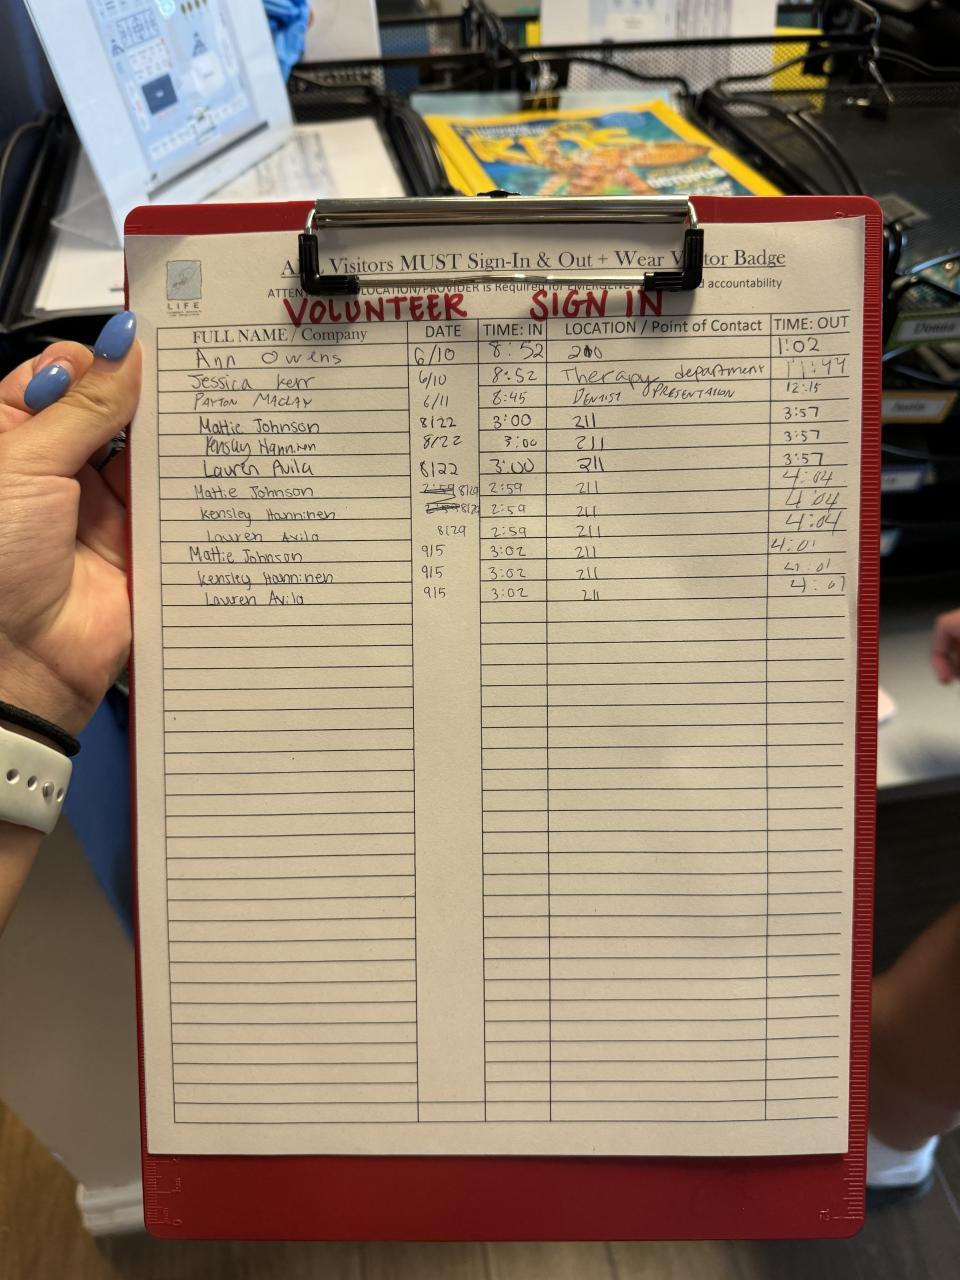 KIDS
Visitors MUST Sign-In & Out + Wear Visitor Badge
LOCATION/PROVIDER is Required for EMERGENCY accountability
LIFE
VOLUNTEER SIGN IN
FULL NAME / Company DATE TIME: IN LOCATION / Point of Contact TIME: OUT
Ann Owens 6/10 8:52 200 1:02
Jessica Kerr 6/10 8:52 Therapy department 11:44
PAYTON MACLAY 6/11 8:45 DENTIST PRESENTATION 12:15
Mattie Johnson 8/22 3:00 211 3:57
Kensley Hanninen 8/22 3:00 211 3:57
Lauren Avila 8/22 3:00 211 3:57
Mattie Johnson 2:59 8/29 2:59 211 4:04
Kensley Hanninen 2:59 8/29 2:59 211 4:04
Lauren Avila 8/29 2:59 211 4:04
Mattie Johnson 9/5 3:02 211 4:01
Kensley Hanninen 9/5 3:02 211 4:01
Lauren Avila 9/5 3:02 211 4:01
Donna
12